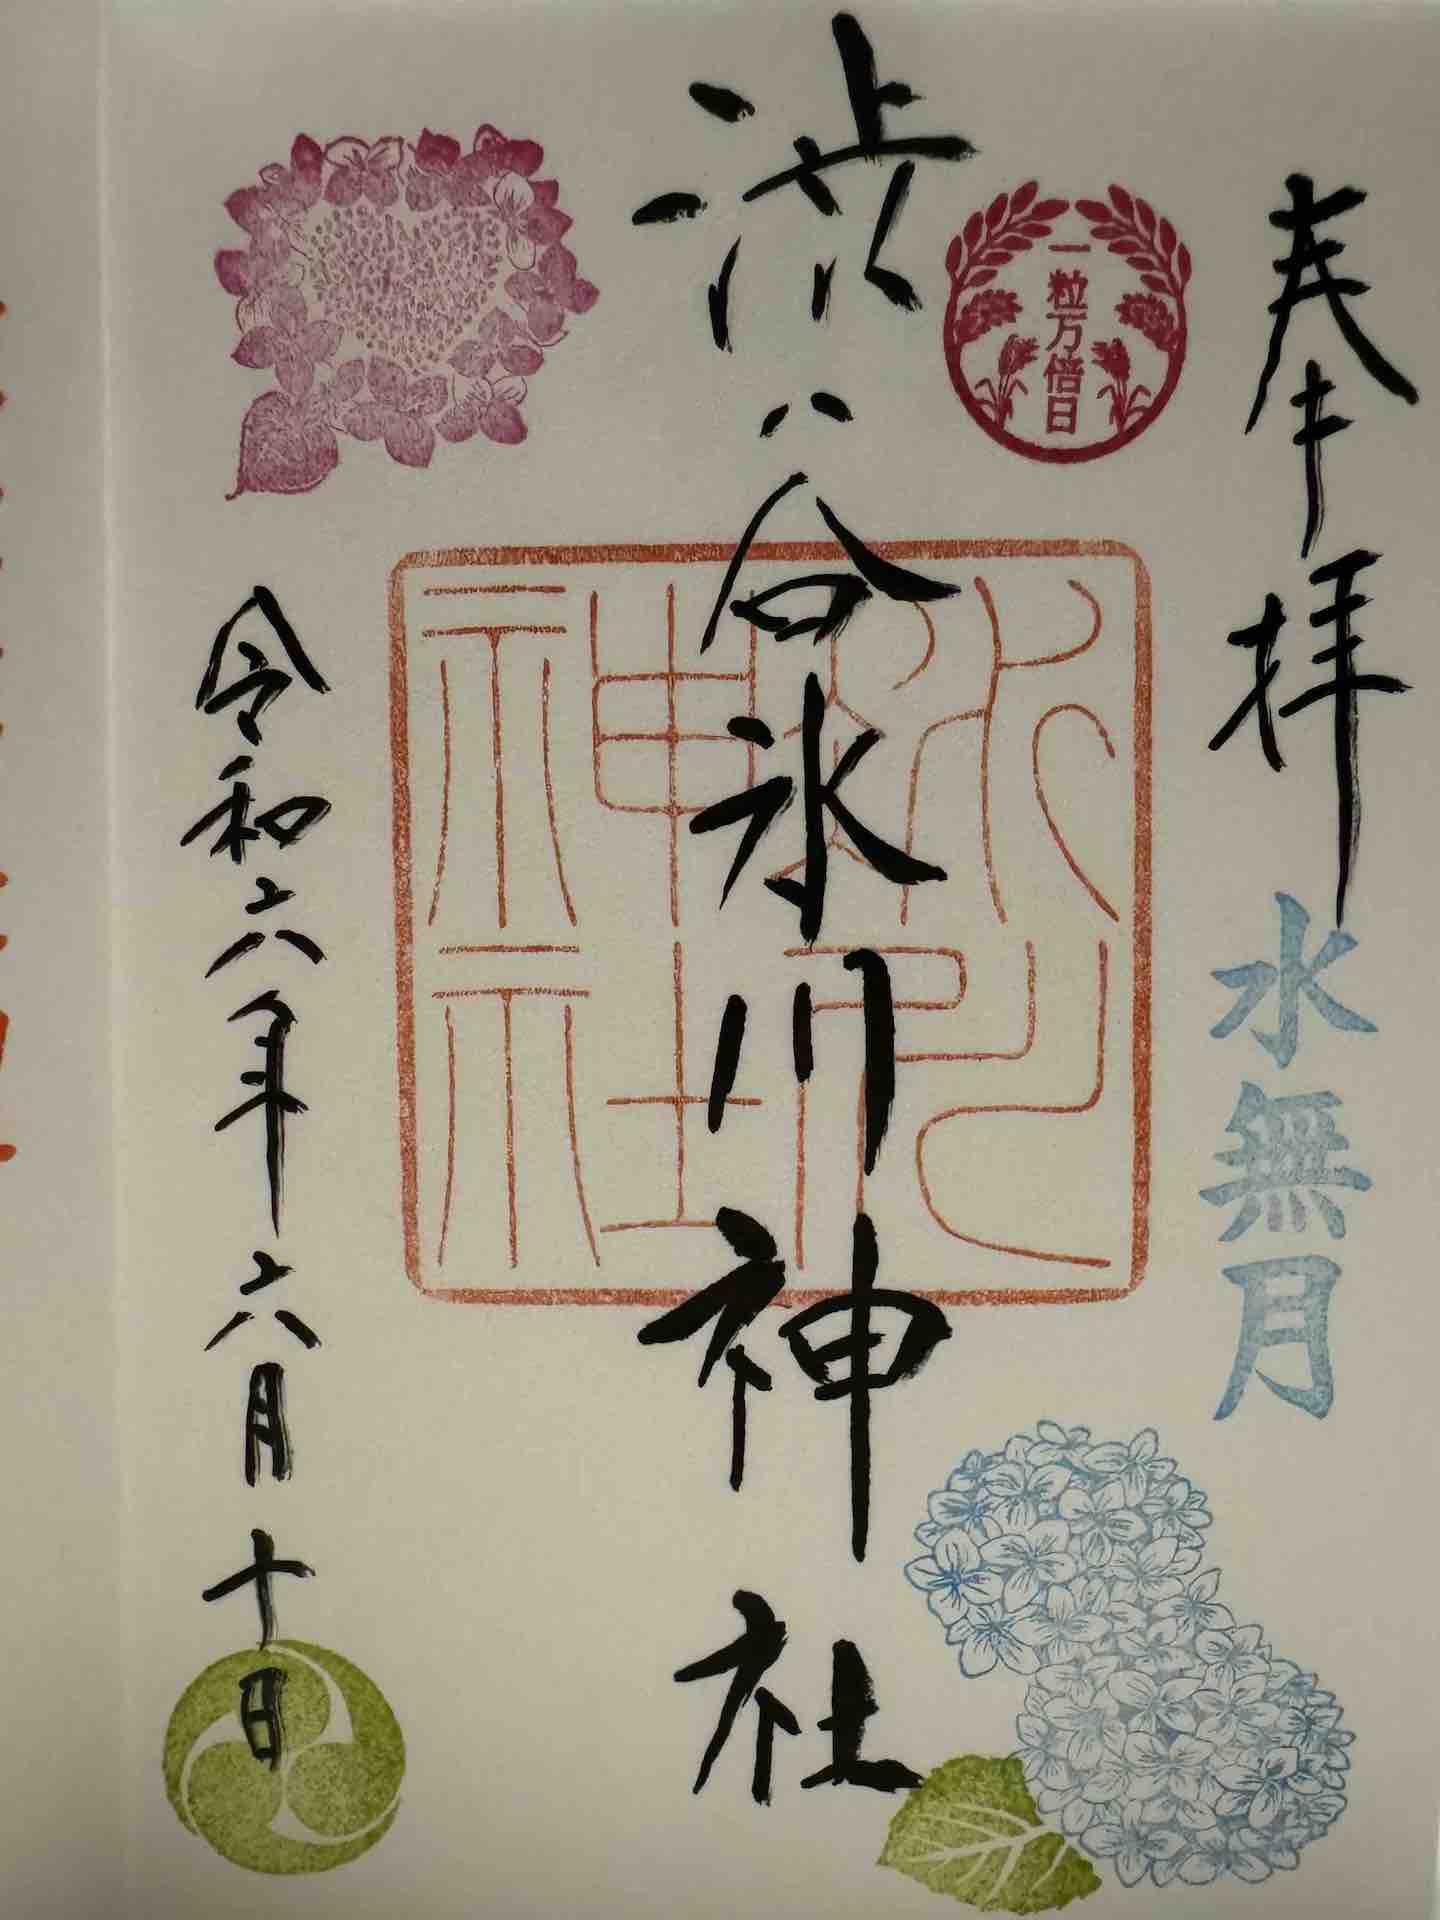 奉拝
水無月
一粒万倍日
渋谷氷川神社
令和六年六月十日